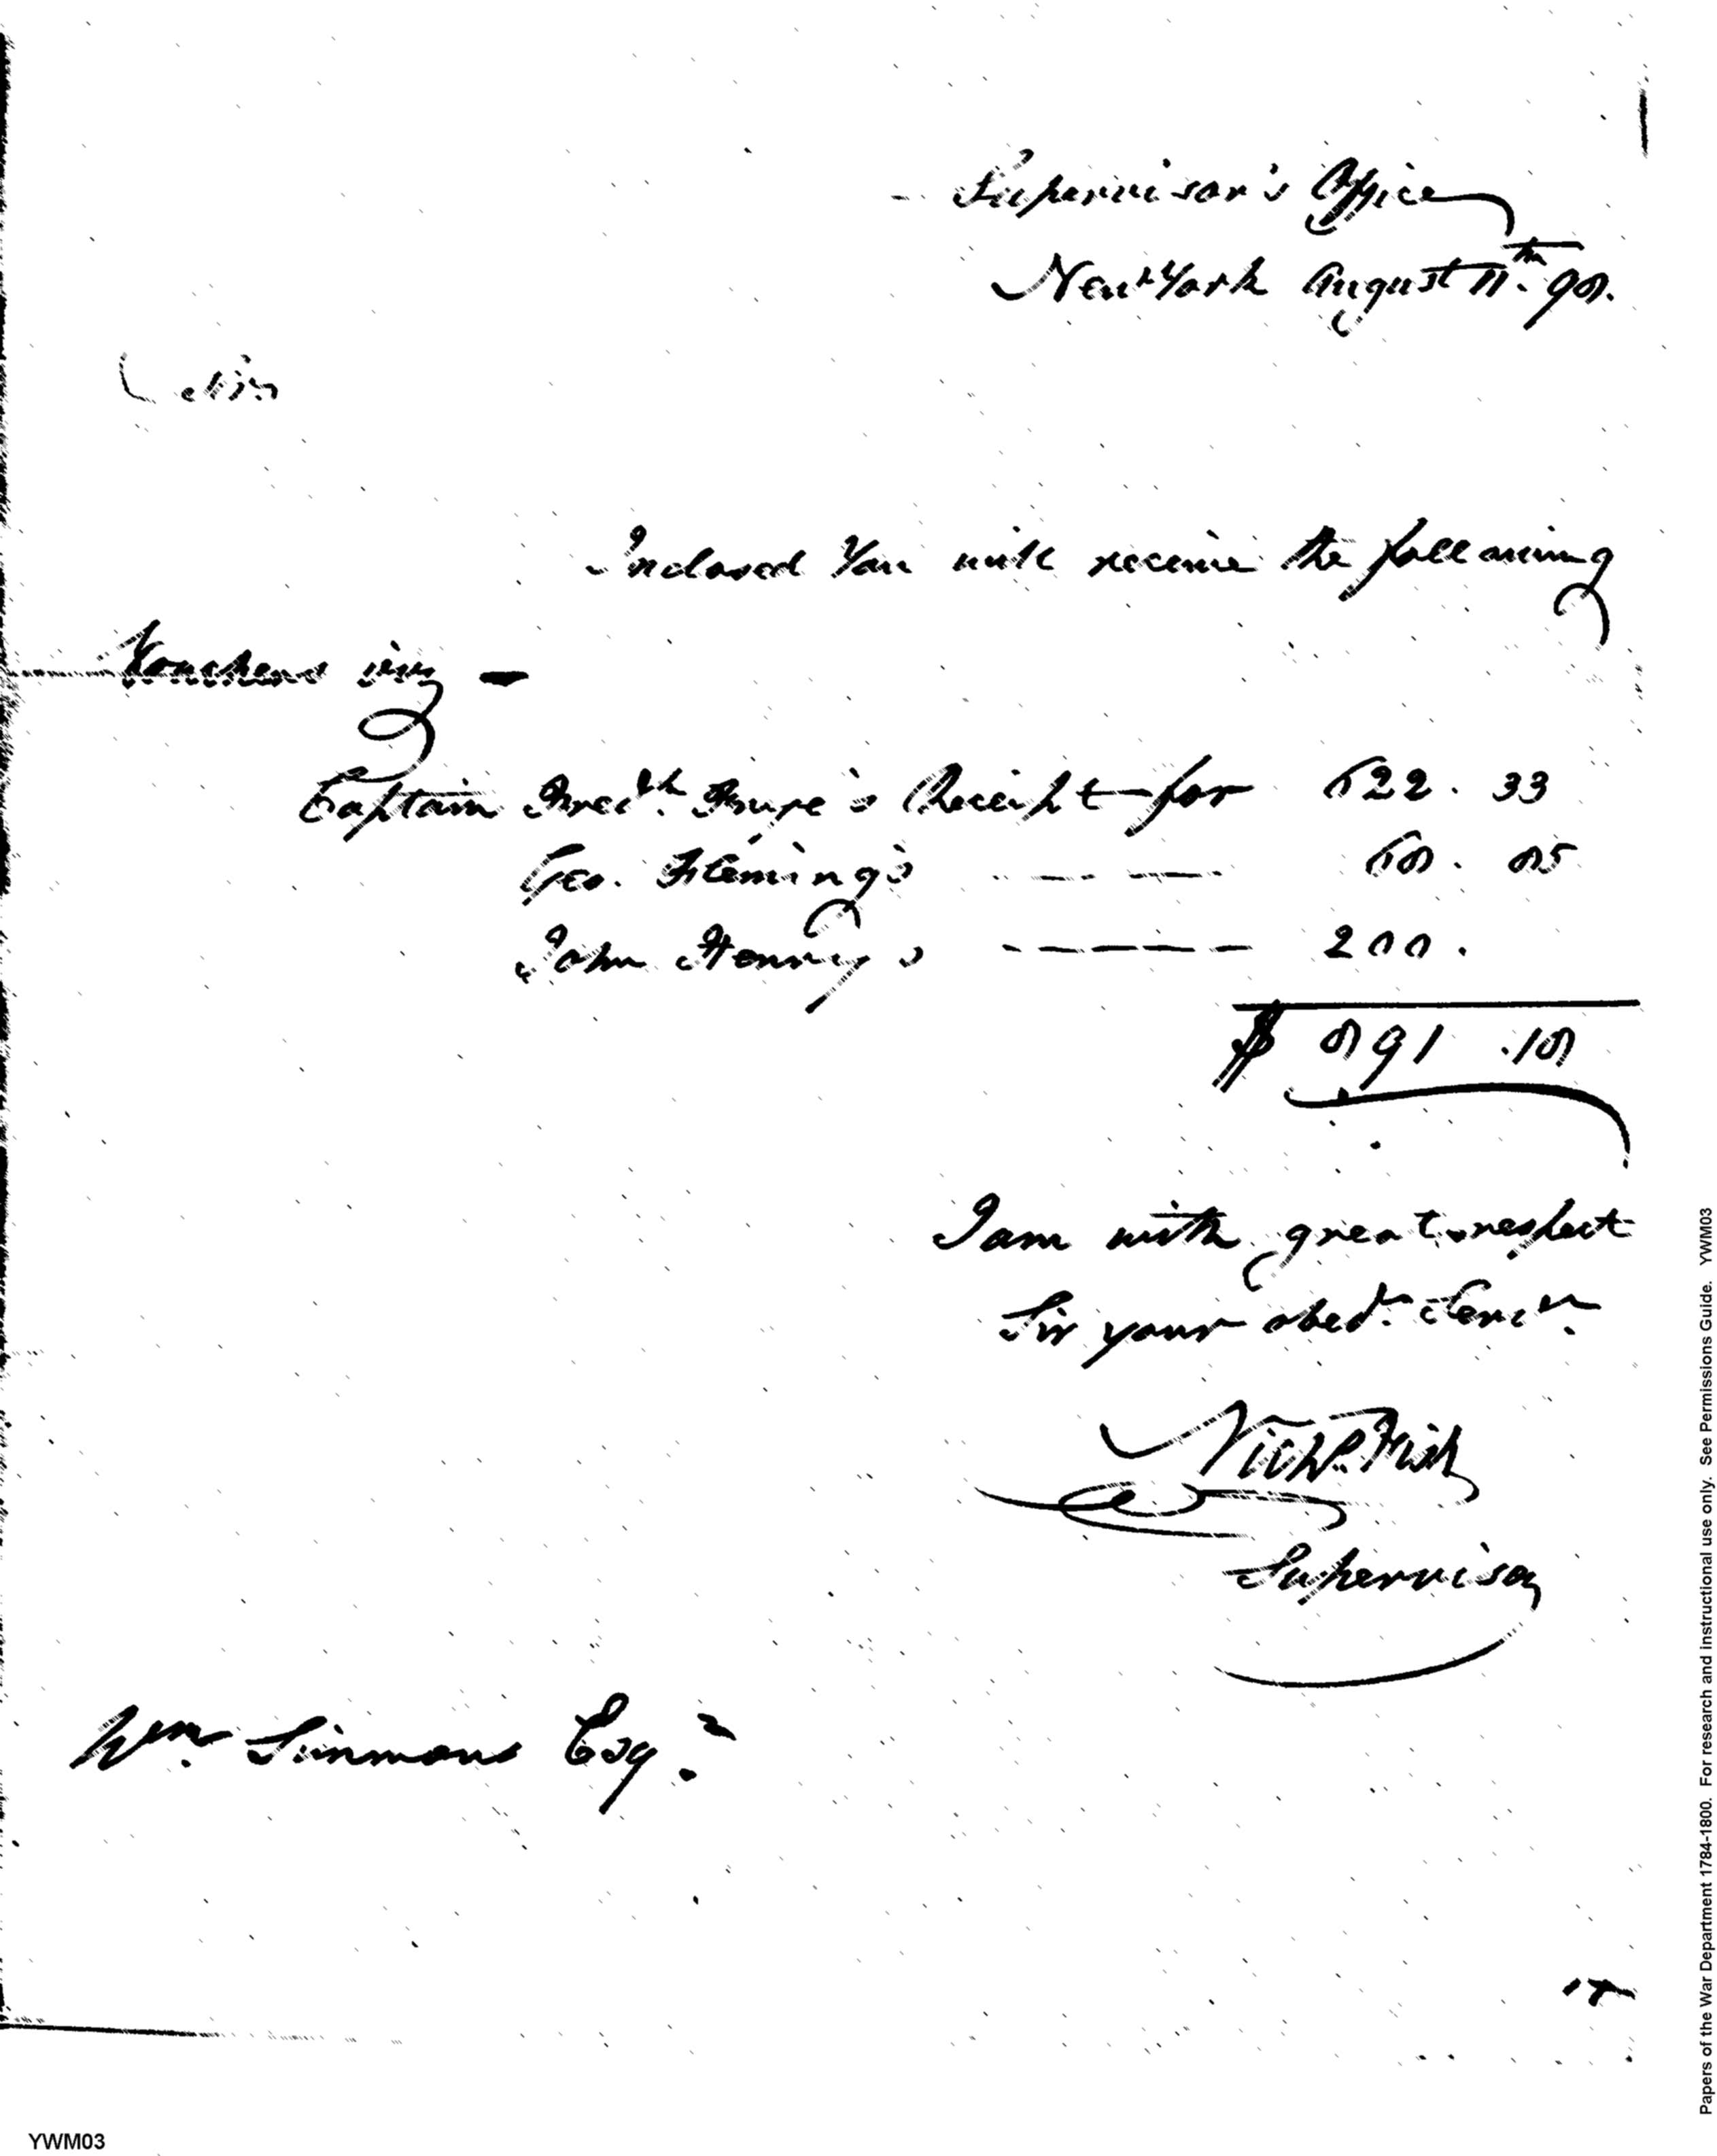 Supervisor's Office
New York August 11th 98.
Sir
Inclosed You will receive the following
Vouchers viz –
Captain Fredk. Frye's Receipt for 622. 33
Geo. Fleming's — — 68. 85
John Henry's — — — — 200.
$ 891.18
I am with great respect
Sir your obedt. Servt.
Nichs. Fish
Supervisor
Wm. Simmons Esqr.
YWM03
Papers of the War Department 1784-1800. For research and instructional use only. See Permissions Guide. YWM03